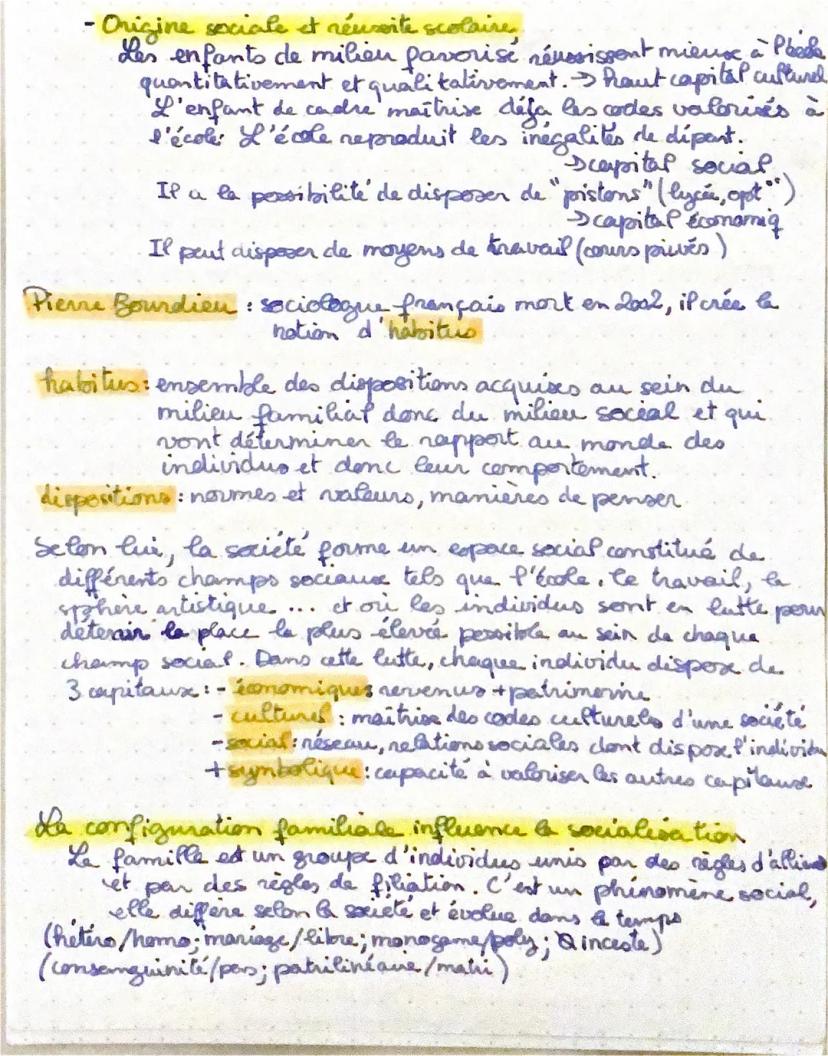 - Origine sociale et réussite scolaire
Les enfants de milieu favorisé réussissent mieux à l'école
quantitativement et qualitativement. → haut capital culturel
L'enfant de cadre maîtrise déjà les codes valorisés à
l'école. L'école reproduit les inégalités de départ.
→ capital social
Il a la possibilité de disposer de "pistons" (lycée, opt°)
→ capital économiq
Il peut disposer de moyens de travail (cours privés)
Pierre Bourdieu : sociologue français mort en 2002, il crée la
notion d'habitus
habitus : ensemble des dispositions acquises au sein du
milieu familial donc du milieu social et qui
vont déterminer le rapport au monde des
individus et donc leur comportement.
dispositions : normes et valeurs, manières de penser
Selon lui, la société forme un espace social constitué de
différents champs sociaux tels que l'école, le travail, la
sphère artistique ... et où les individus sont en lutte pour
détenir la place la plus élevée possible au sein de chaque
champ social. Dans cette lutte, chaque individu dispose de
3 capitaux : - économiques revenus + patrimoine
- culturel : maîtrise des codes culturels d'une société
- social : réseau, relations sociales dont dispose l'individu
+ symbolique : capacité à valoriser les autres capitaux
La configuration familiale influence la socialisation
La famille est un groupe d'individus unis par des règles d'alliance
et par des règles de filiation. C'est un phénomène social,
elle diffère selon la société et évolue dans le temps
(hétéro/homo; mariage/libre; monogame/poly; inceste)
(consanguinité/pas; patrilinéaire/matri)